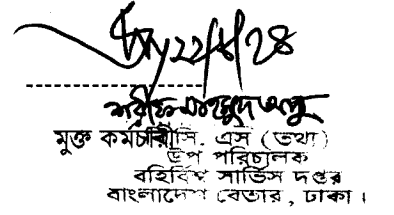 ২২/৮/২৪
শরীফ মাহমুদ অপু
মুক্ত কর্মচারী সি. এস (তথ্য)
উপ পরিচালক
বহির্বিশ্ব সার্ভিস দপ্তর
বাংলাদেশ বেতার, ঢাকা।